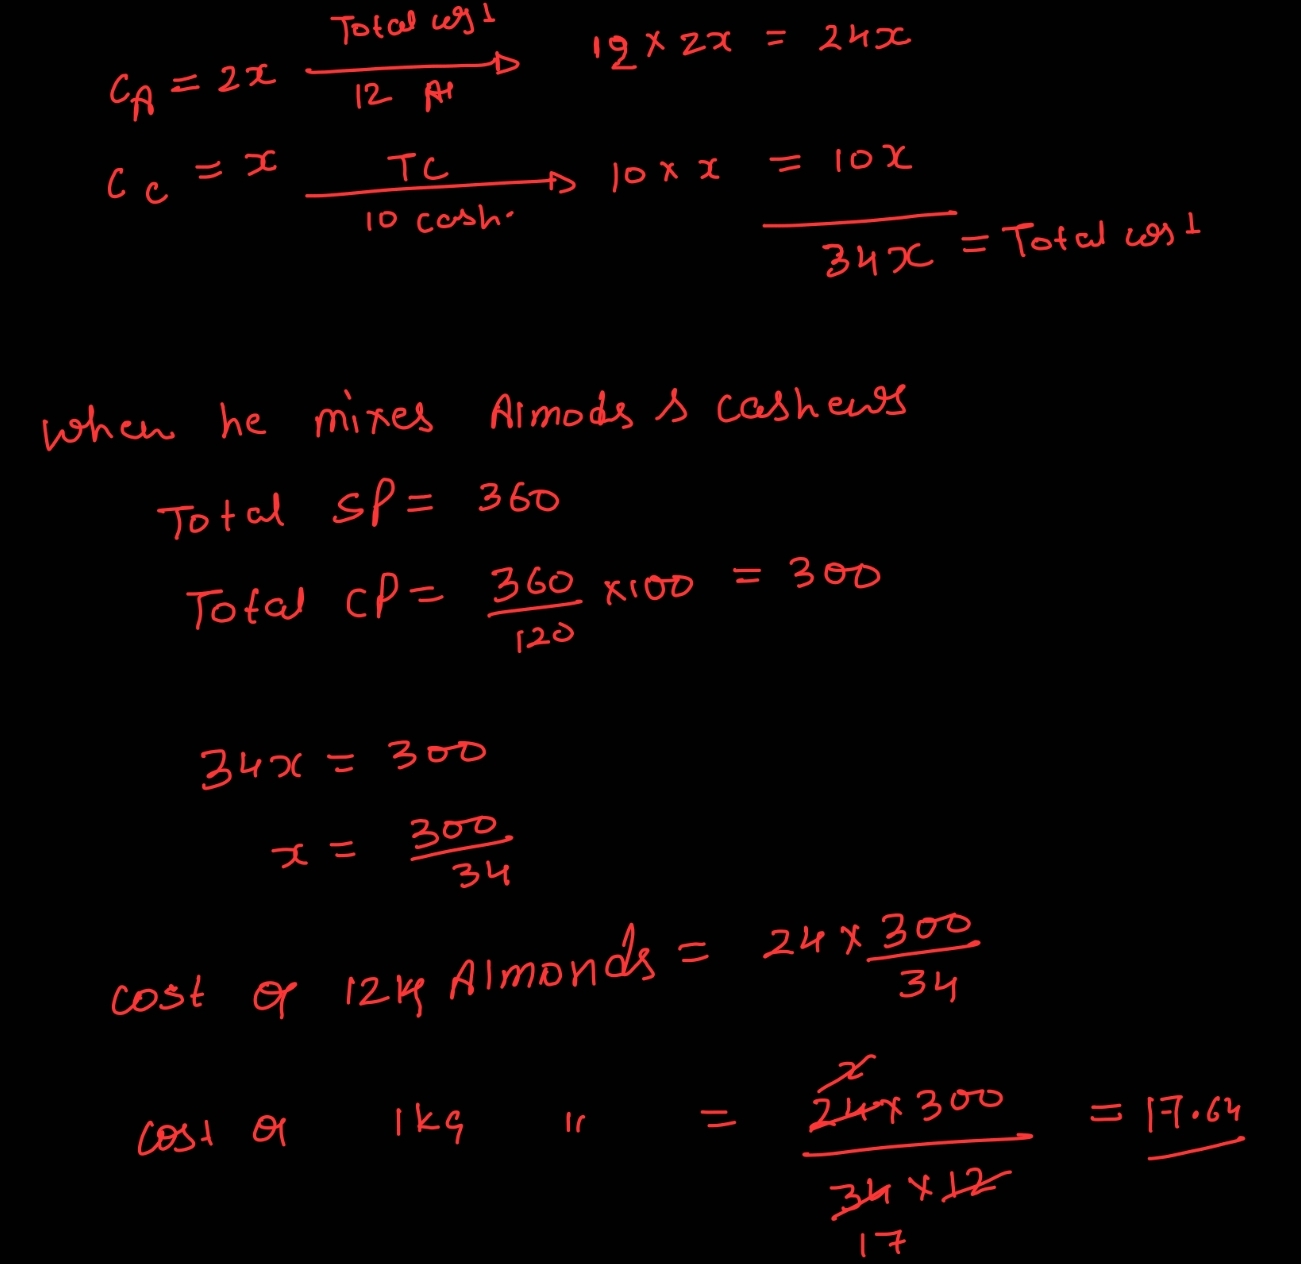 C_A = 2x Total cost 12 Al 12 × 2x = 24x
C_c = x TC 10 cash. 10 × x = 10x
34x = Total cost
When he mixes Almods & cashews
Total SP = 360
Total CP = 360/120 ×100 = 300
34x = 300
x = 300/34
cost of 12kg Almonds = 24 × 300/34
cost of 1kg 11 = 24×300/34×12 = 17.64
2
17